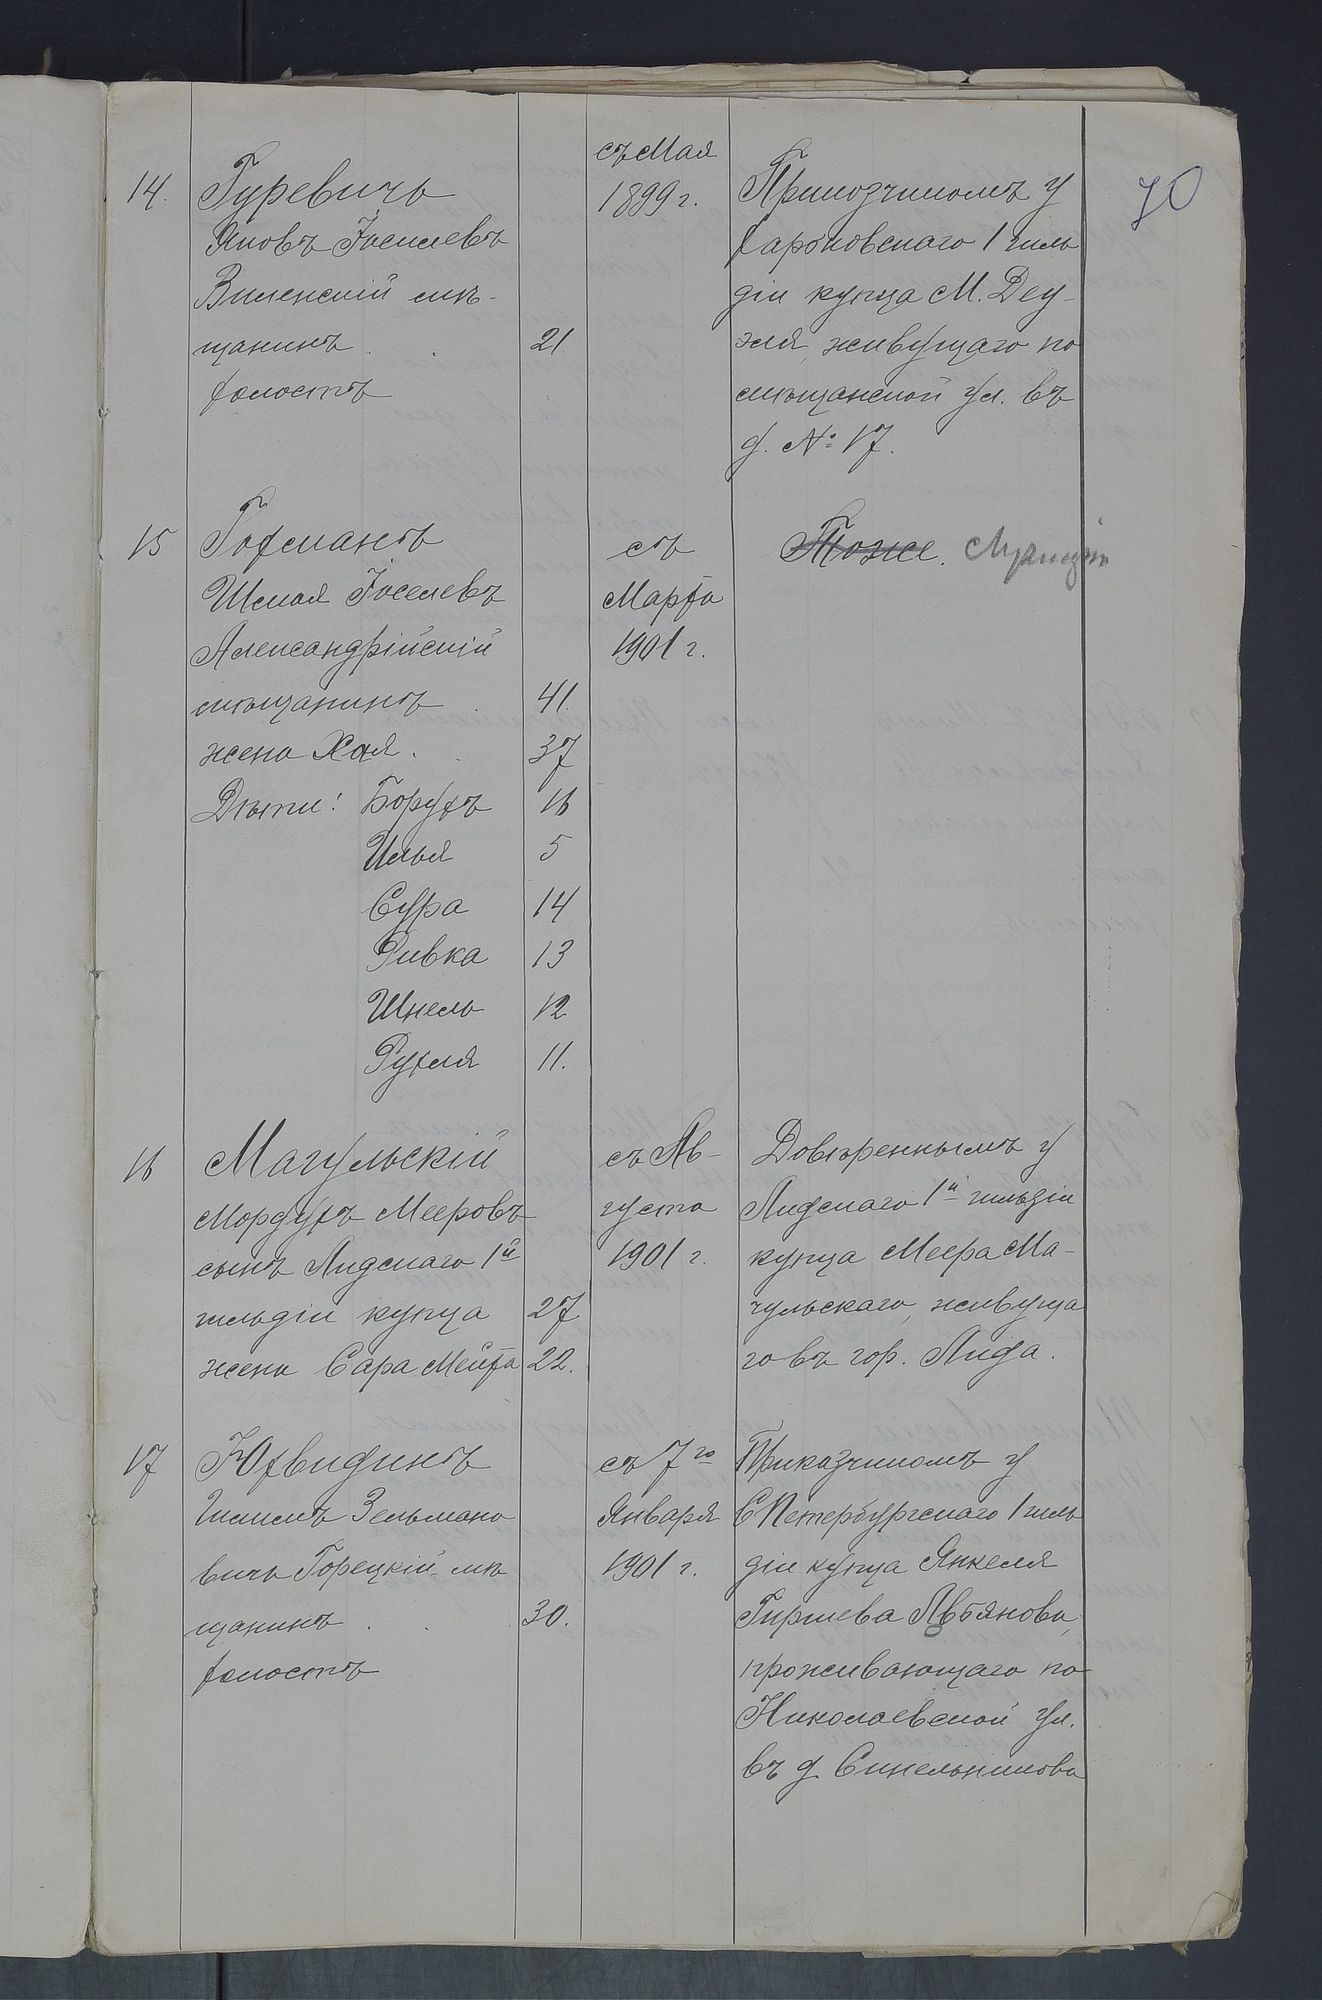 70
14. Гуревичъ
Яковъ Іоселевъ
Виленскій мѣ-
щанинъ . . 21
холостъ
съ Мая
1899 г.
Приказчикомъ у
Харьковскаго 1 гиль
діи купца М. Деу-
эля, живущаго по
мѣщанской ул. въ
д. № 17.
15 Гофманъ
Шмая Іоселевъ
Александрійскій
мѣщанинъ . 41.
жена Хая . . 37
Дѣти: Борухъ 16
Илья 5
Сура 14
Ривка 13
Шнель 12
Рухля 11.
съ
Марта
1901 г.
Тоже.
16 Мачульскій
Мордухъ Мееровъ
сынъ Лидскаго 1й
гильдіи купца 27
жена Сара Мейта 22.
съ Ав-
густа
1901 г.
Довѣреннымъ у
Лидскаго 1й гильдіи
купца Меера Ма-
чульскаго, живуща
го въ гор. Лида.
17 Юхвидинъ
Шмилъ Зельмано
вичъ Горецкій мѣ
щанинъ . . 30.
холостъ
съ 7го
Января
1901 г.
Приказчикомъ у
СПетербургскаго 1 гиль
діи купца Янкеля
Гиршева
проживающаго по
Николаевской ул.
въ д Синельникова